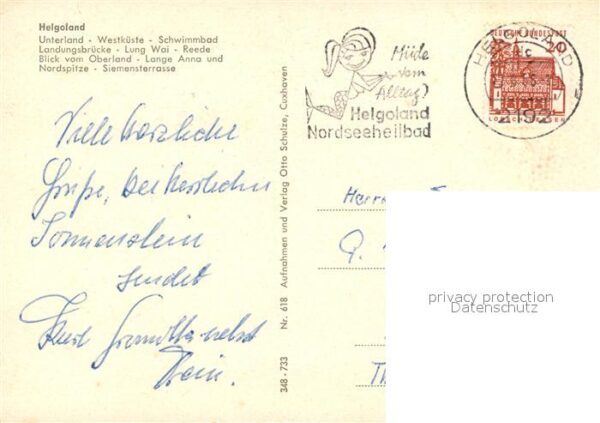 Helgoland
Unterland · Westküste · Schwimmbad
Landungsbrücke · Lung Wai · Reede
Blick vom Oberland · Lange Anna und
Nordspitze · Siemensterrasse
Müde
vom
Alltag?
Helgoland
Nordseeheilbad
DEUTSCHE BUNDESPOST
20
HELGOLAND
2192
Viele herzliche
Grüße, bei herrlichem
Sonnenschein
sendet
Nr. 618 Aufnahmen und Verlag Otto Schulze, Cuxhaven
348 - 733
Herrn
privacy protection
Datenschutz